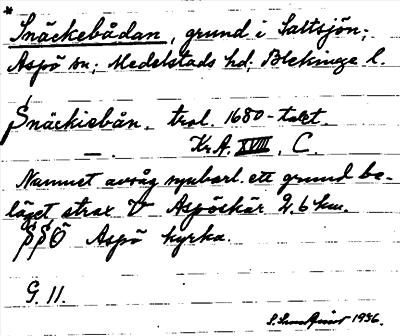 *
Snäckebådan, grund i Saltsjön;
Aspö sn; Medelstads hd, Blekinge l.
Snäckiebån. trol. 1680-talet.
Kr.A. XVIII, C.
Namnet avsåg synbarl. ett grund be-
läget strax V Aspöskär 2,6 km.
SSÖ Aspö kyrka.
G. 11.
1936.